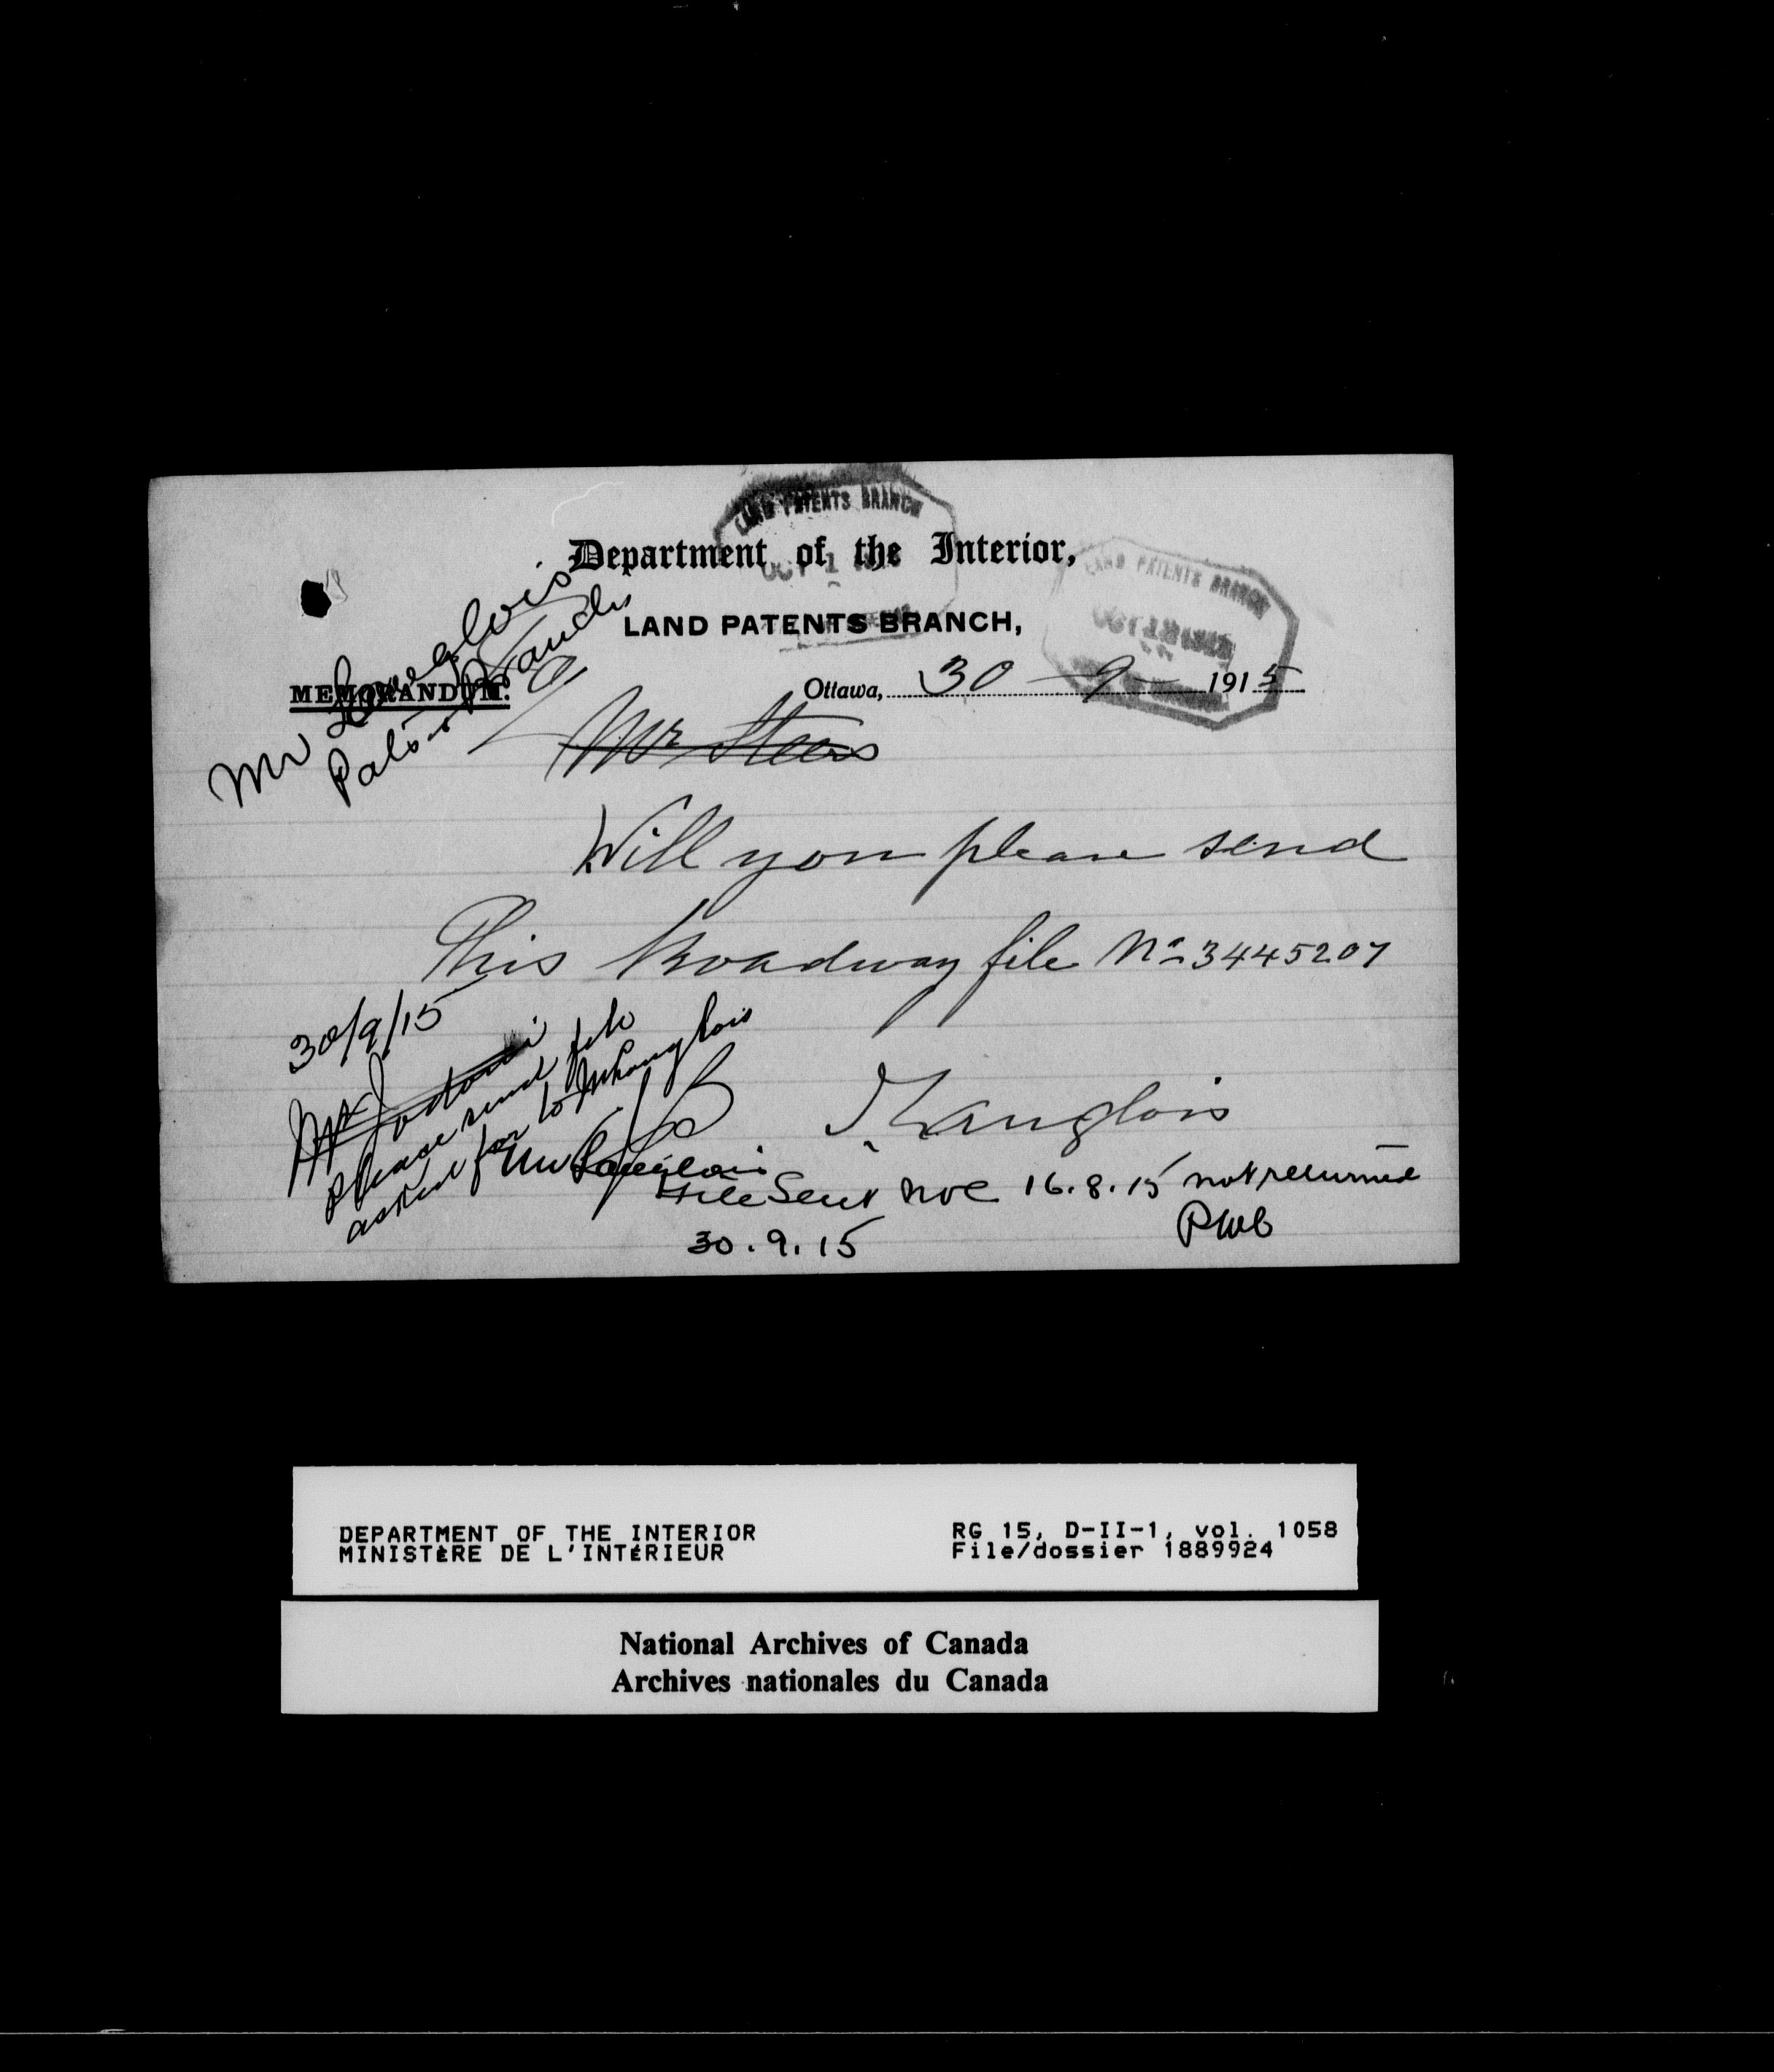 LAND PATENTS BRANCH
Department of the Interior,
LAND PATENTS BRANCH
OCT 1
LAND PATENTS BRANCH,
MEMORANDUM.
Ottawa, 30 - 9 - 1915
Mr Langlois
Mr Steers
Will you please send
This Roadway file No 3445207
30/9/15
Mr
please send file
asked for to Mr Langlois
Langlois
Mr Langlois
File Sent 16.8.15 not returned
30.9.15
DEPARTMENT OF THE INTERIOR
MINISTÈRE DE L'INTÉRIEUR
RG 15, D-II-1, vol. 1058
File/dossier 1889924
National Archives of Canada
Archives nationales du Canada